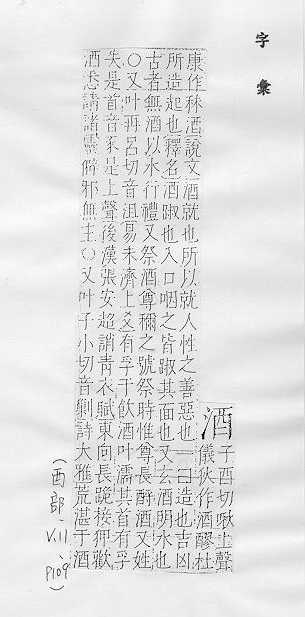 字彙
酒
子酉切啾上聲
儀狄作酒醪杜
康作秫酒說文酒就也所以就人性之善惡也一曰造也吉凶
所造起也釋名酒踧也入口咽之皆踧其面也又玄酒明水也
古者無酒以水行禮又祭酒尊穪之號祭時惟尊長酹酒又姓
○又叶再呂切音沮易未濟上爻有孚于飲酒叶濡其首有孚
失是首音是上聲後漢張安超誚青衣賦東向長跪接狎歡
酒悉請諸靈僻邪無主○又叶子小切音剿詩大雅荒湛于酒
(酉部、V.11、P109)